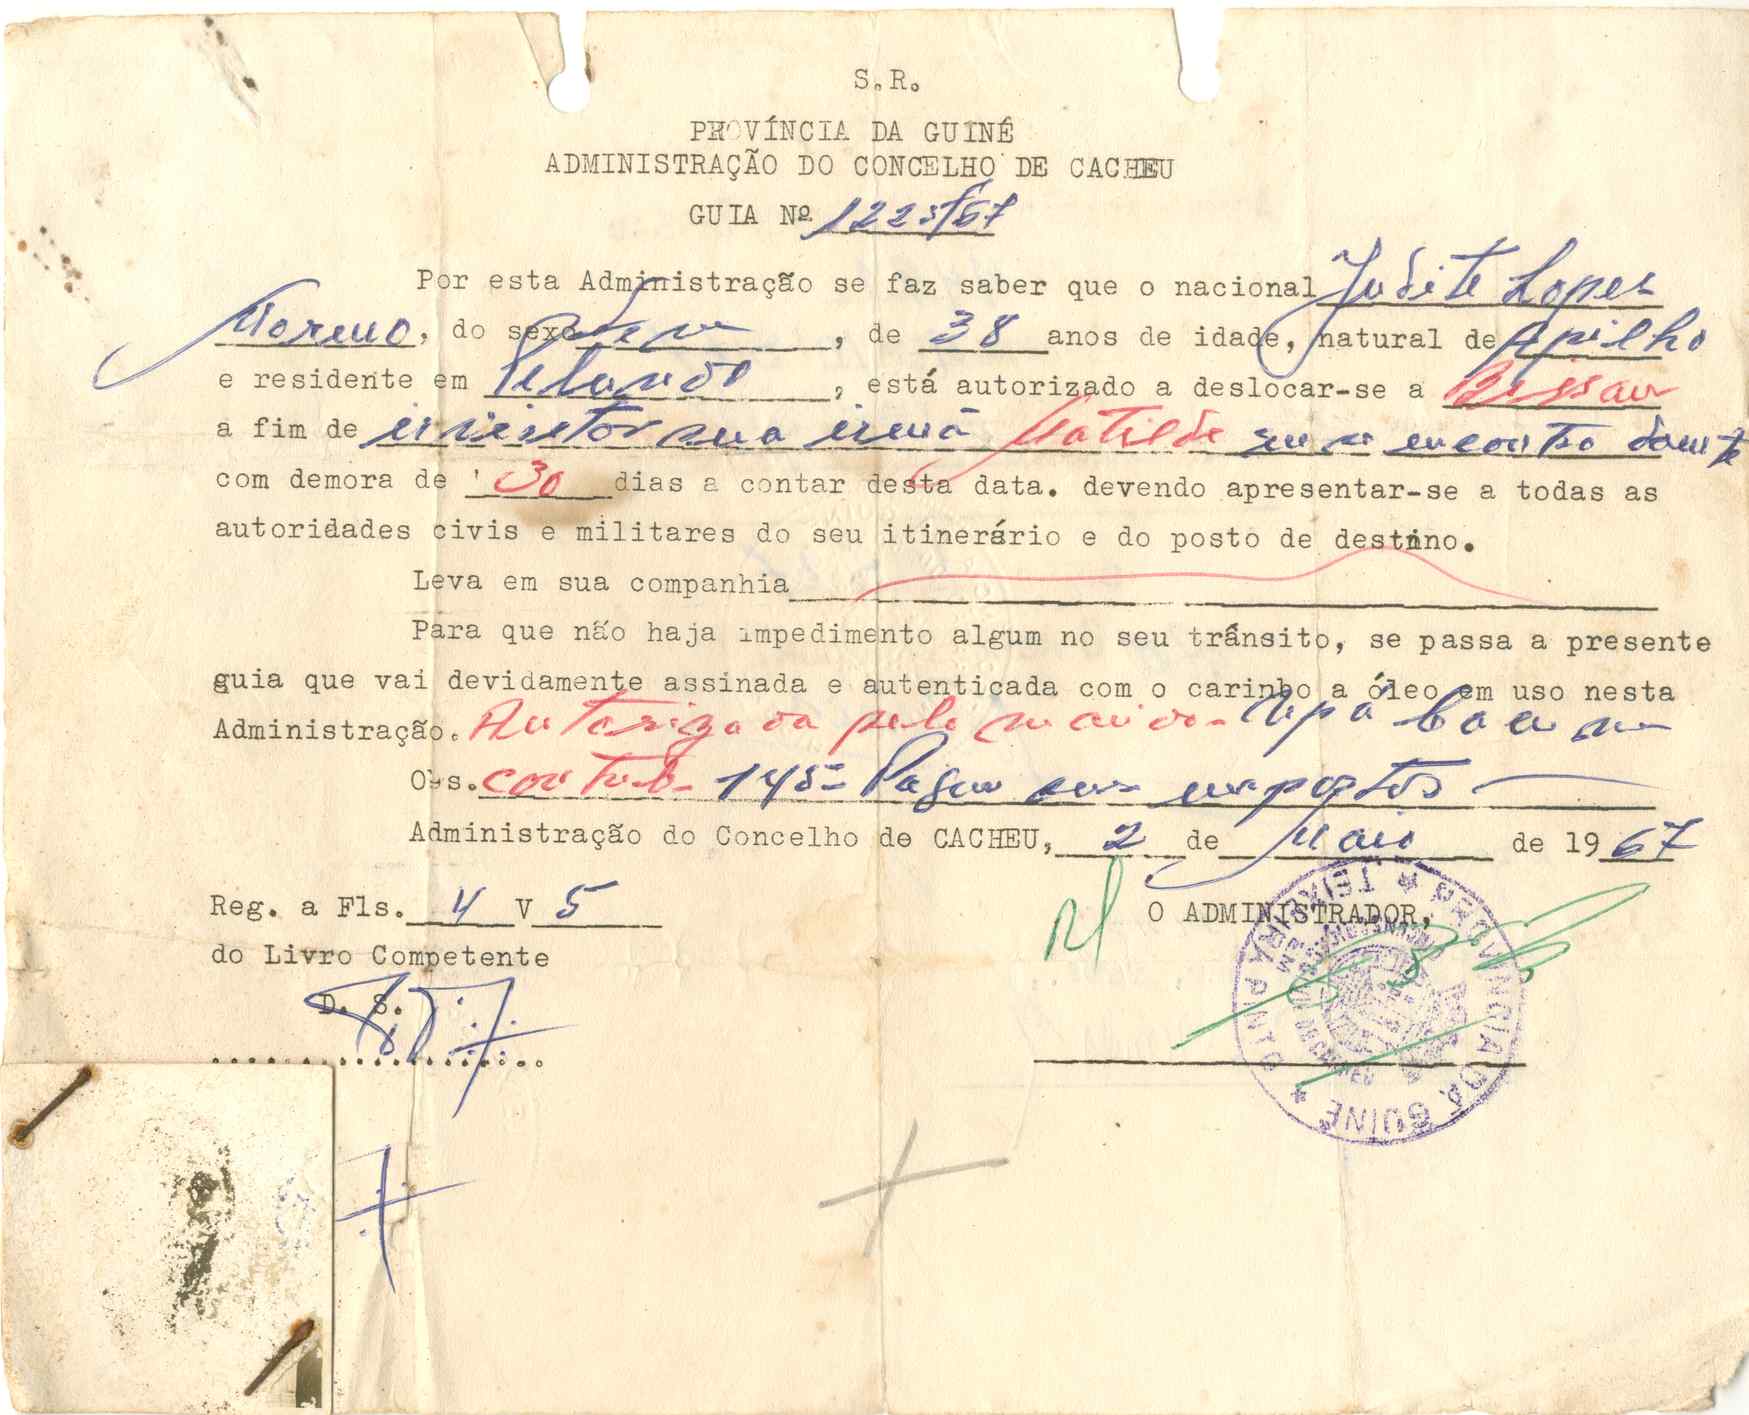 S.R.
PROVÍNCIA DA GUINÉ
ADMINISTRAÇÃO DO CONCELHO DE CACHEU
GUIA Nº 1223/67
Por esta Administração se faz saber que o nacional Judite Lopes
Moreno, do sexo fem, de 38 anos de idade, natural de Apilho
e residente em Pelundo, está autorizado a deslocar-se a Bissau
a fim de ir visitar sua irmã Matilde que se encontra doente
com demora de 30 dias a contar desta data. devendo apresentar-se a todas as
autoridades civis e militares do seu itinerário e do posto de destino.
Leva em sua companhia
Para que não haja impedimento algum no seu trânsito, se passa a presente
guia que vai devidamente assinada e autenticada com o carinho a óleo em uso nesta
Administração. Autorizada pelo
Obs. 145 Pagou seus impostos
Administração do Concelho de CACHEU, 2 de Maio de 1967
Reg. a Fls. 4 V 5
O ADMINISTRADOR,
do Livro Competente
D. S.
TEIXEIRA PINTO
GUINÉ